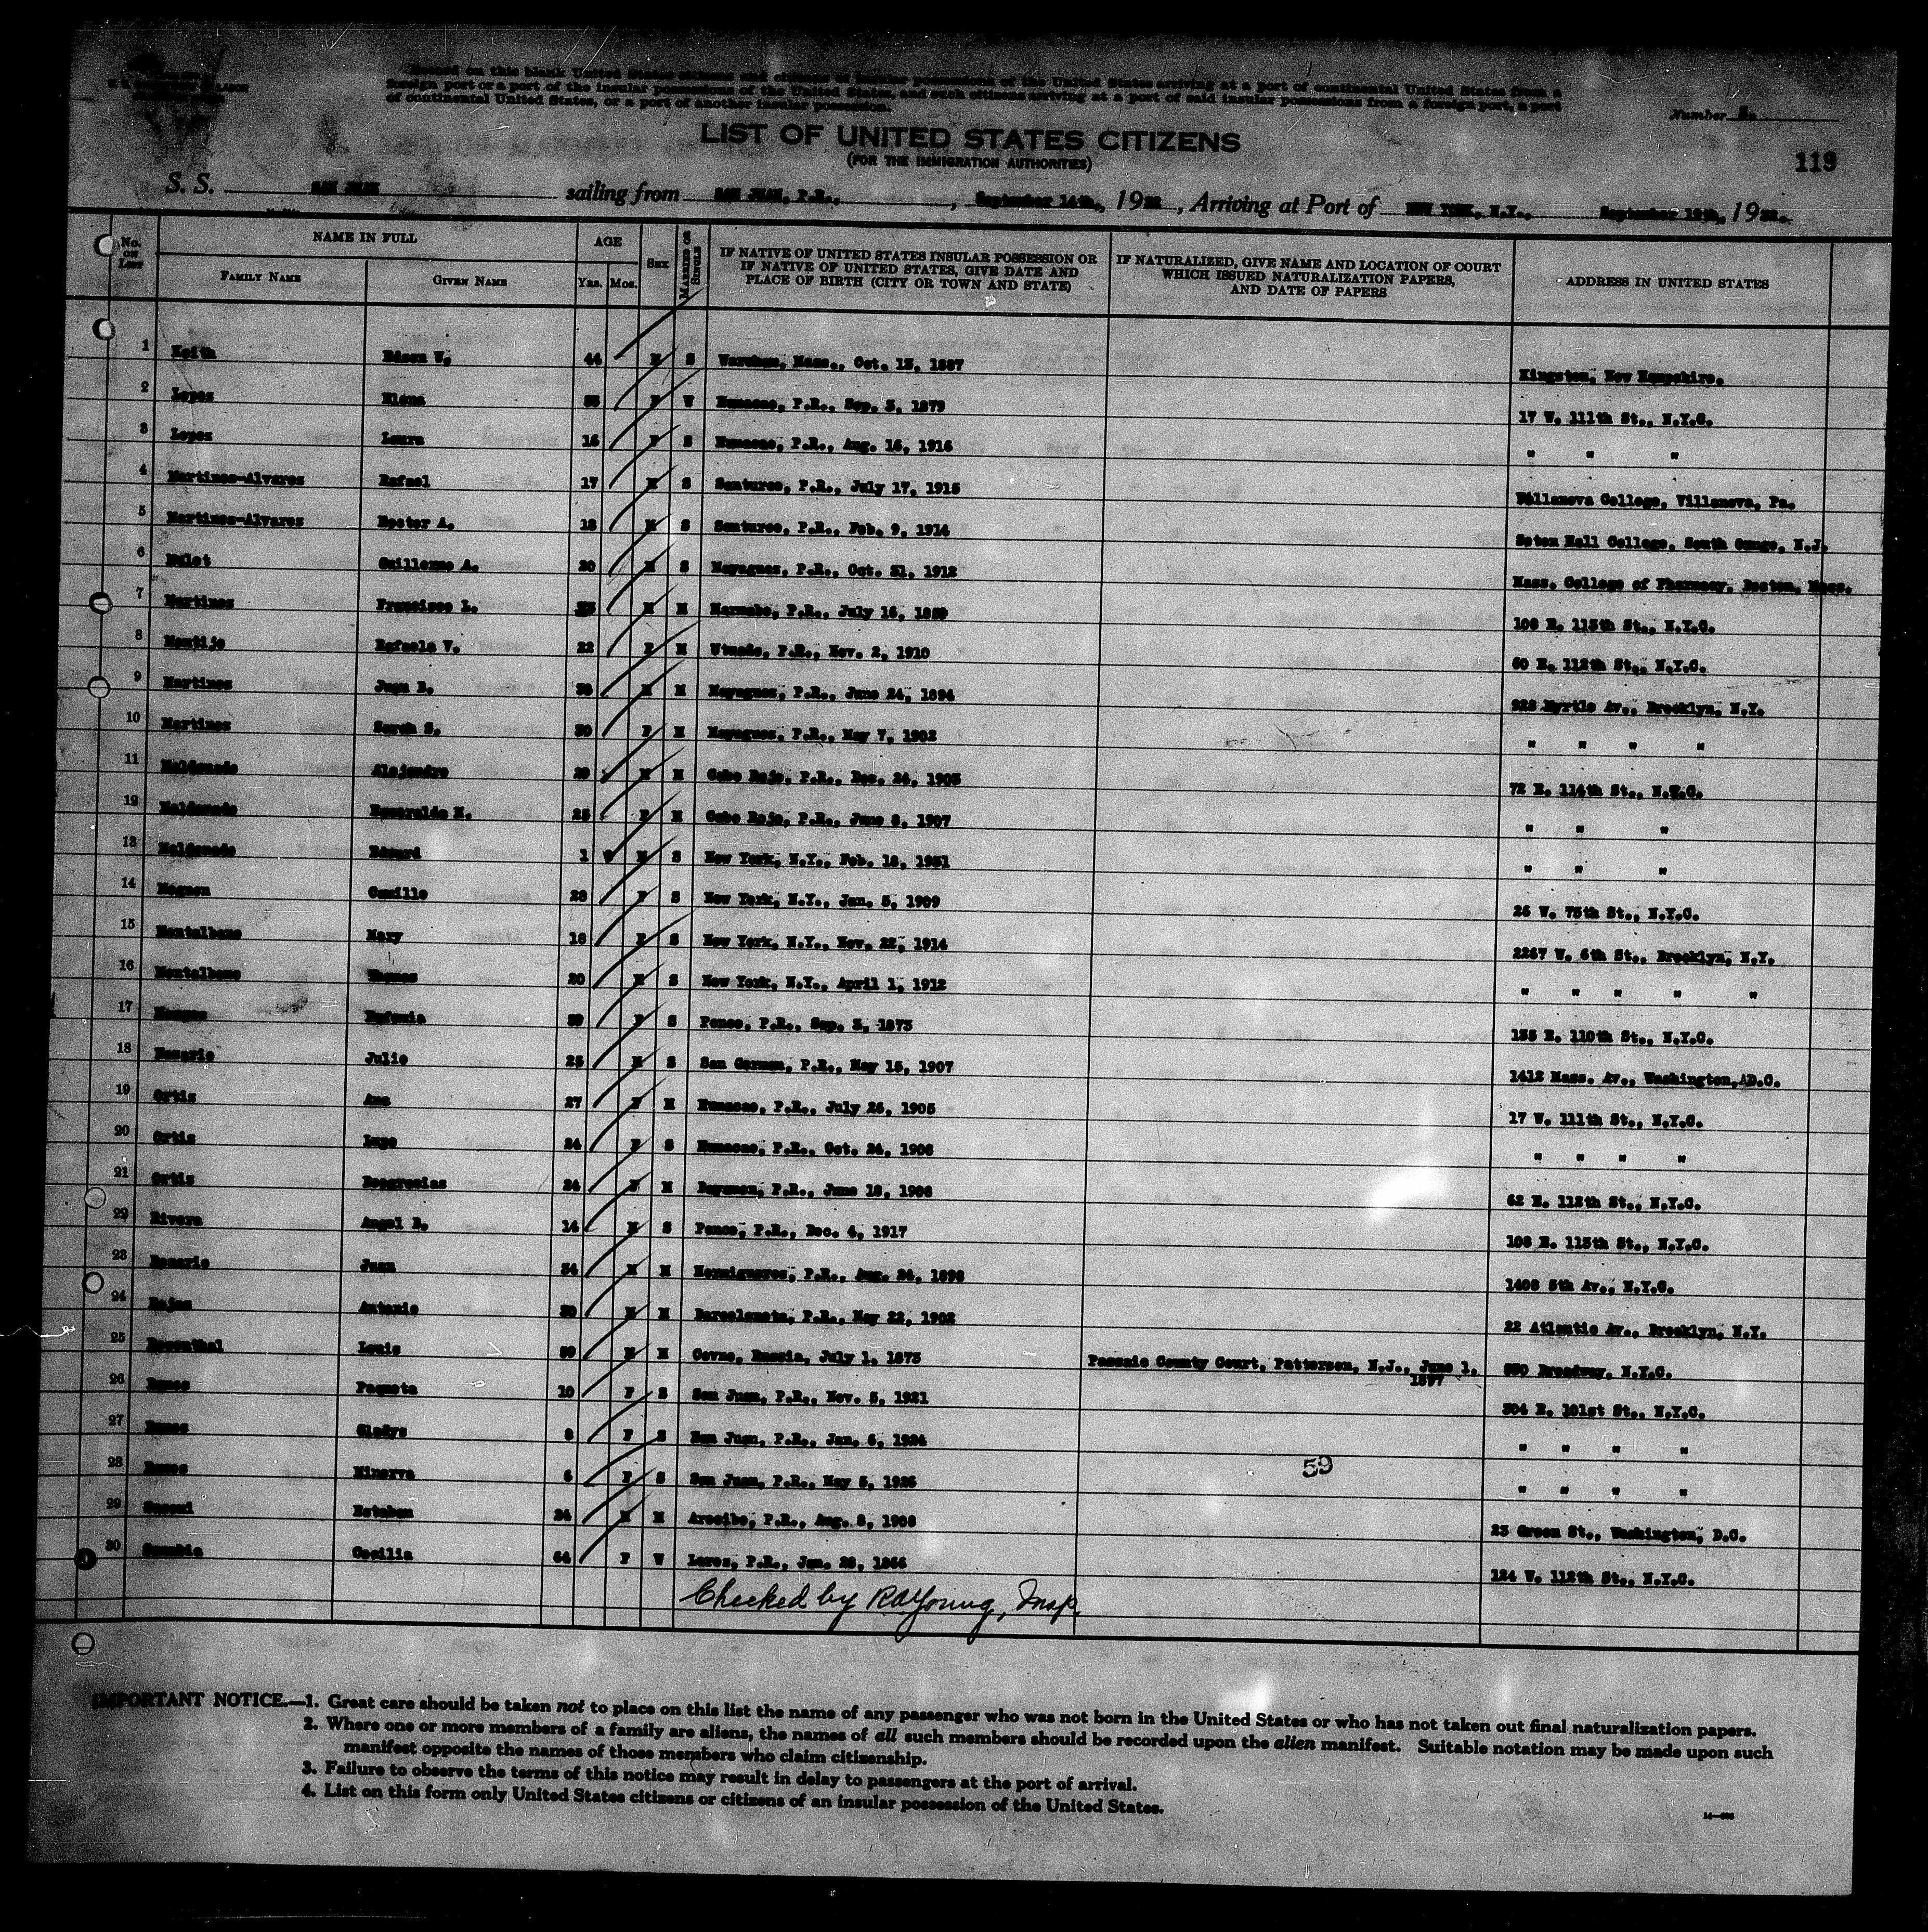 foreign port or a port of the insular possessions of the United States, and such citizens arriving at a port of said insular possessions from a foreign port, a port
of continental United States, or a port of another insular possession.
Number
LIST OF UNITED STATES CITIZENS
(FOR THE IMMIGRATION AUTHORITIES)
119
S. S. SAN JUAN sailing from SAN JUAN, P.R., September 14th, 1932, Arriving at Port of NEW YORK, N.Y., September 19th, 1932.
No. on List NAME IN FULL AGE Sex Married or Single IF NATIVE OF UNITED STATES INSULAR POSSESSION OR IF NATIVE OF UNITED STATES, GIVE DATE AND PLACE OF BIRTH (CITY OR TOWN AND STATE) IF NATURALIZED, GIVE NAME AND LOCATION OF COURT WHICH ISSUED NATURALIZATION PAPERS, AND DATE OF PAPERS ADDRESS IN UNITED STATES
Family Name Given Name Yrs. Mos.
1 Keith Edson W. 44 M S Wareham, Mass., Oct. 13, 1887 Kingston, New Hampshire.
2 Lopez Elena 53 F W Humacao, P.R., Sep. 3, 1879 17 W. 111th St., N.Y.C.
3 Lopez Laura 16 F S Humacao, P.R., Aug. 16, 1916 " " "
4 Martinez-Alvarez Rafael 17 M S Santurce, P.R., July 17, 1915 Villanova College, Villanova, Pa.
5 Martinez-Alvarez Hector A. 18 M S Santurce, P.R., Feb. 9, 1914 Seton Hall College, South Orange, N.J.
6 Mulet Guillermo A. 20 M S Mayaguez, P.R., Oct. 31, 1912 Mass. College of Pharmacy, Boston, Mass.
7 Martinez Francisco L. M M Maunabo, P.R., July 16, 108 E. 115th St., N.Y.C.
8 Montijo Rafaela V. 22 F M Utuado, P.R., Nov. 2, 1910 60 E. 112th St., N.Y.C.
9 Martinez Juan B. 38 M M Mayaguez, P.R., June 24, 1894 928 Myrtle Av., Brooklyn, N.Y.
10 Martinez Sarah S. 30 F M Mayaguez, P.R., May 7, 1902 " " " "
11 Maldonado Alejandro 29 M M Cabo Rojo, P.R., Dec. 24, 1903 72 E. 114th St., N.Y.C.
12 Maldonado Esmeralda N. 25 F M Cabo Rojo, P.R., June 8, 1907 " " "
13 Maldonado Edward 1 M S New York, N.Y., Feb. 18, 1931 " " "
14 Magnon Camille 23 F S New York, N.Y., Jan. 5, 1909 26 W. 75th St., N.Y.C.
15 Montalbano Mary 18 F S New York, N.Y., Nov. 22, 1914 2267 W. 6th St., Brooklyn, N.Y.
16 Montalbano Thomas 20 M S New York, N.Y., April 1, 1912 " " " " "
17 Eufemia 59 F S Ponce, P.R., Sep. 3, 1873 135 E. 110th St., N.Y.C.
18 Nazario Julio 25 M S San German, P.R., May 15, 1907 1412 Mass. Av., Washington, D.C.
19 Ortiz Ana 27 F M Humacao, P.R., July 26, 1905 17 W. 111th St., N.Y.C.
20 Ortiz Lugo 24 F S Humacao, P.R., Oct. 24, 1908 " " " "
21 Ortiz Deogracias 24 M M Bayamon, P.R., June 18, 1908 62 E. 112th St., N.Y.C.
22 Rivera Angel B. 14 M S Ponce, P.R., Dec. 4, 1917 108 E. 115th St., N.Y.C.
23 Rosario Juan 34 M M Hormigueros, P.R., Aug. 24, 1898 1408 5th Av., N.Y.C.
24 Rojas Antonio 30 M M Barceloneta, P.R., May 22, 1902 22 Atlantic Av., Brooklyn, N.Y.
25 Rosenthal Louis 59 M M Covno, Russia, July 1, 1873 Passaic County Court, Patterson, N.J., June 1, 1897 Broadway, N.Y.C.
26 Ramos Paqueta 10 F S San Juan, P.R., Nov. 5, 1921 304 E. 101st St., N.Y.C.
27 Ramos Gladys 8 F S San Juan, P.R., Jan. 6, 1924 " " " "
28 Ramos Minerva 6 F S San Juan, P.R., May 5, 1926 " " " "
59
29 Esteban 24 M M Arecibo, P.R., Aug. 8, 1908 23 Green St., Washington, D.C.
30 Cecilia 64 F W Lares, P.R., Jan. 28, 124 W. 112th St., N.Y.C.
Checked by RA Young, Insp.
IMPORTANT NOTICE.—1. Great care should be taken not to place on this list the name of any passenger who was not born in the United States or who has not taken out final naturalization papers.
2. Where one or more members of a family are aliens, the names of all such members should be recorded upon the alien manifest. Suitable notation may be made upon such
manifest opposite the names of those members who claim citizenship.
3. Failure to observe the terms of this notice may result in delay to passengers at the port of arrival.
4. List on this form only United States citizens or citizens of an insular possession of the United States.